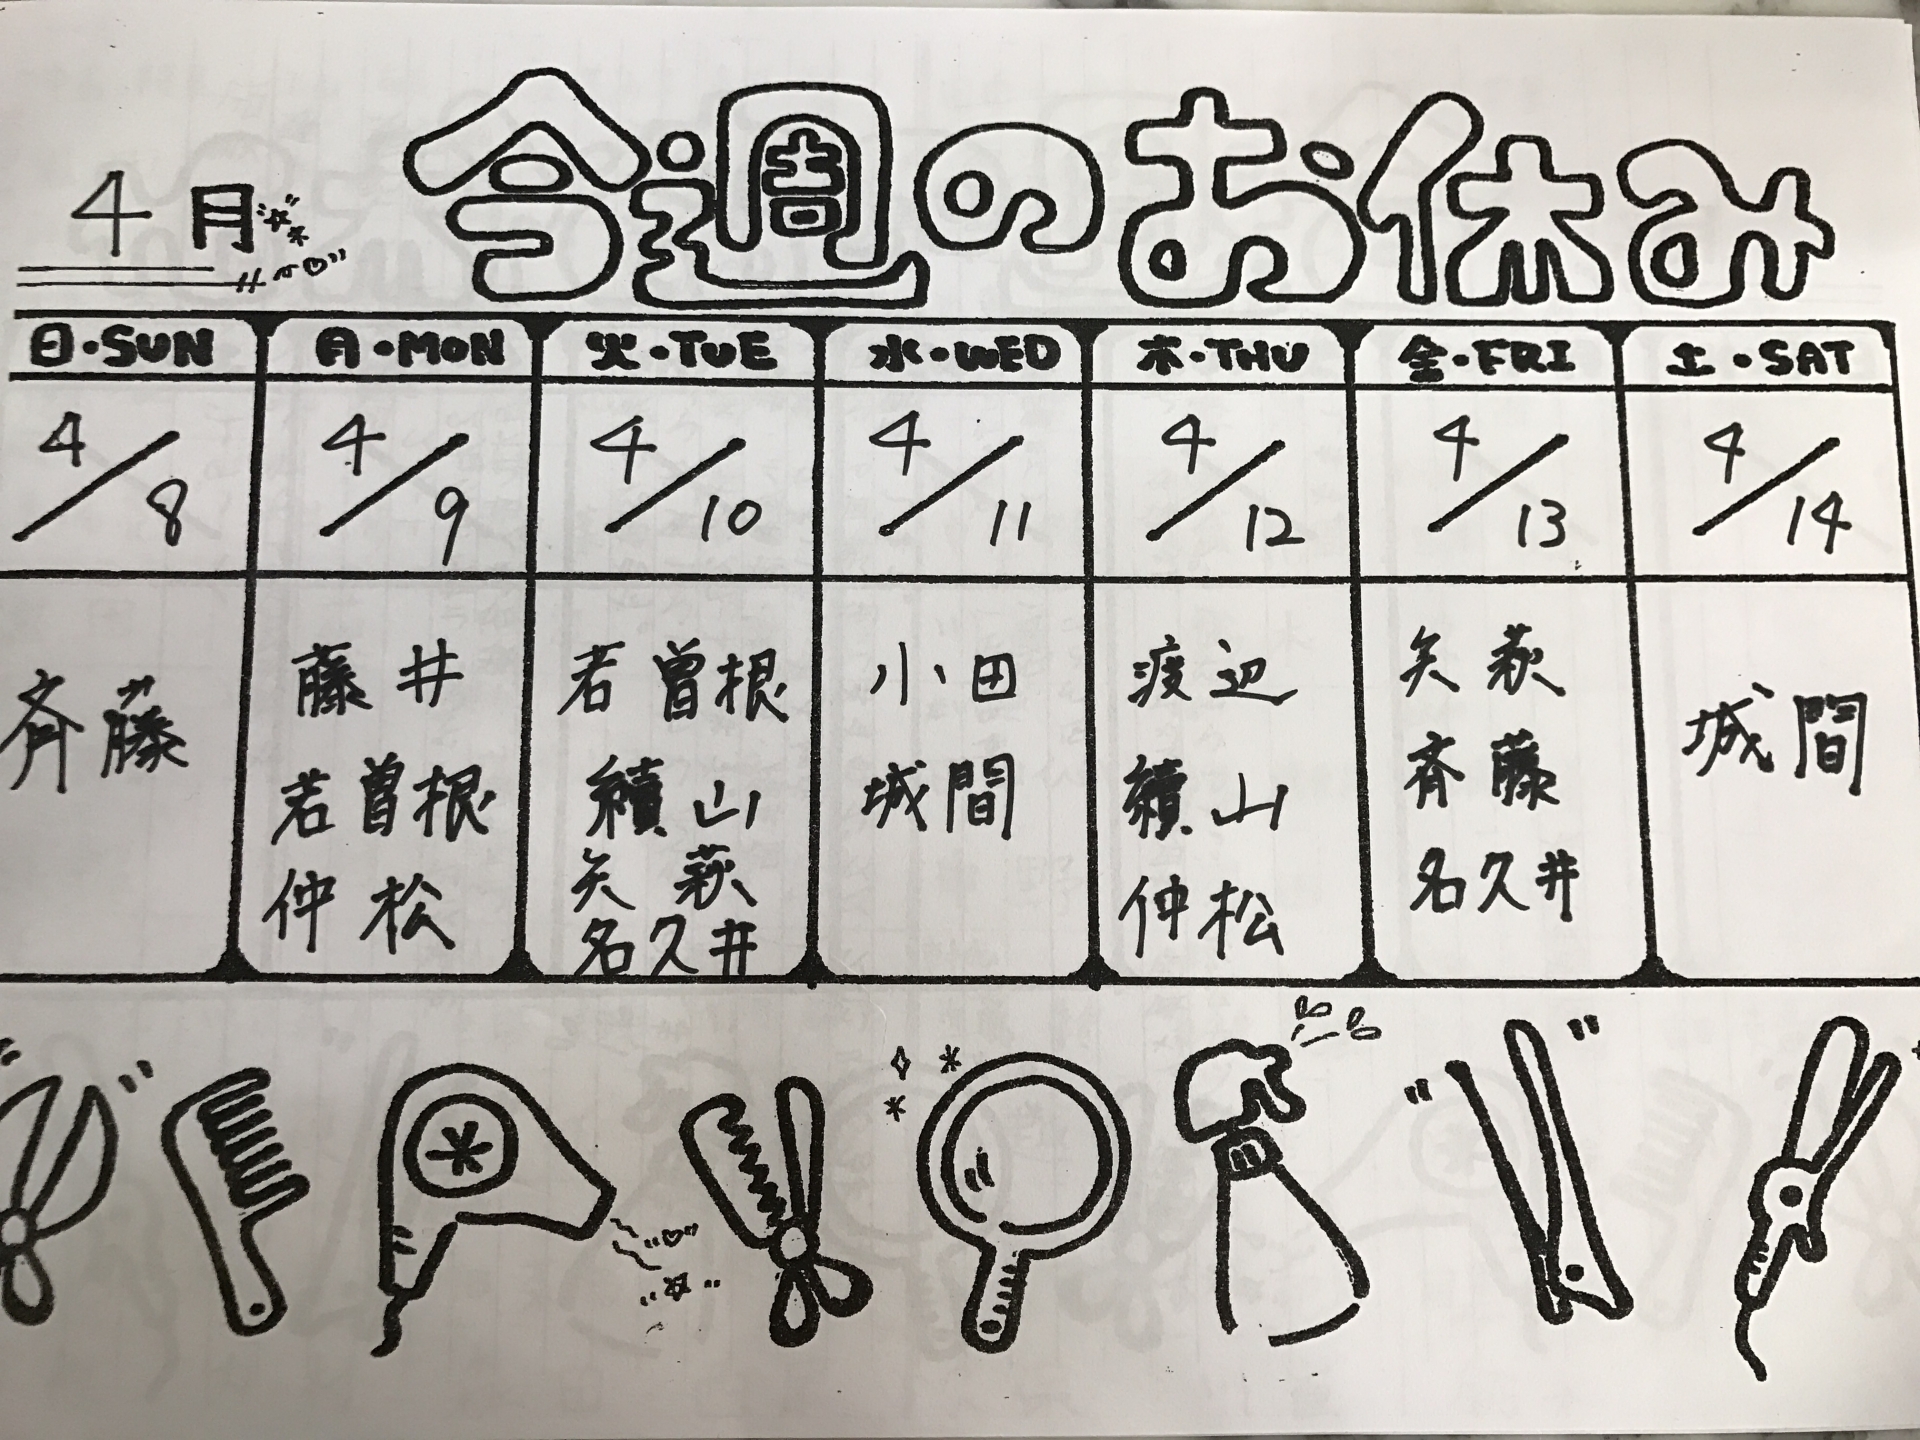 4月
今週のお休み
日・SUN 月・MON 火・TUE 水・WED 木・THU 金・FRI 土・SAT
4/8 4/9 4/10 4/11 4/12 4/13 4/14
斉藤
藤井
若曽根
仲松
若曽根
續山
矢萩
名久井
小田
城間
渡辺
續山
仲松
矢萩
斉藤
名久井
城間